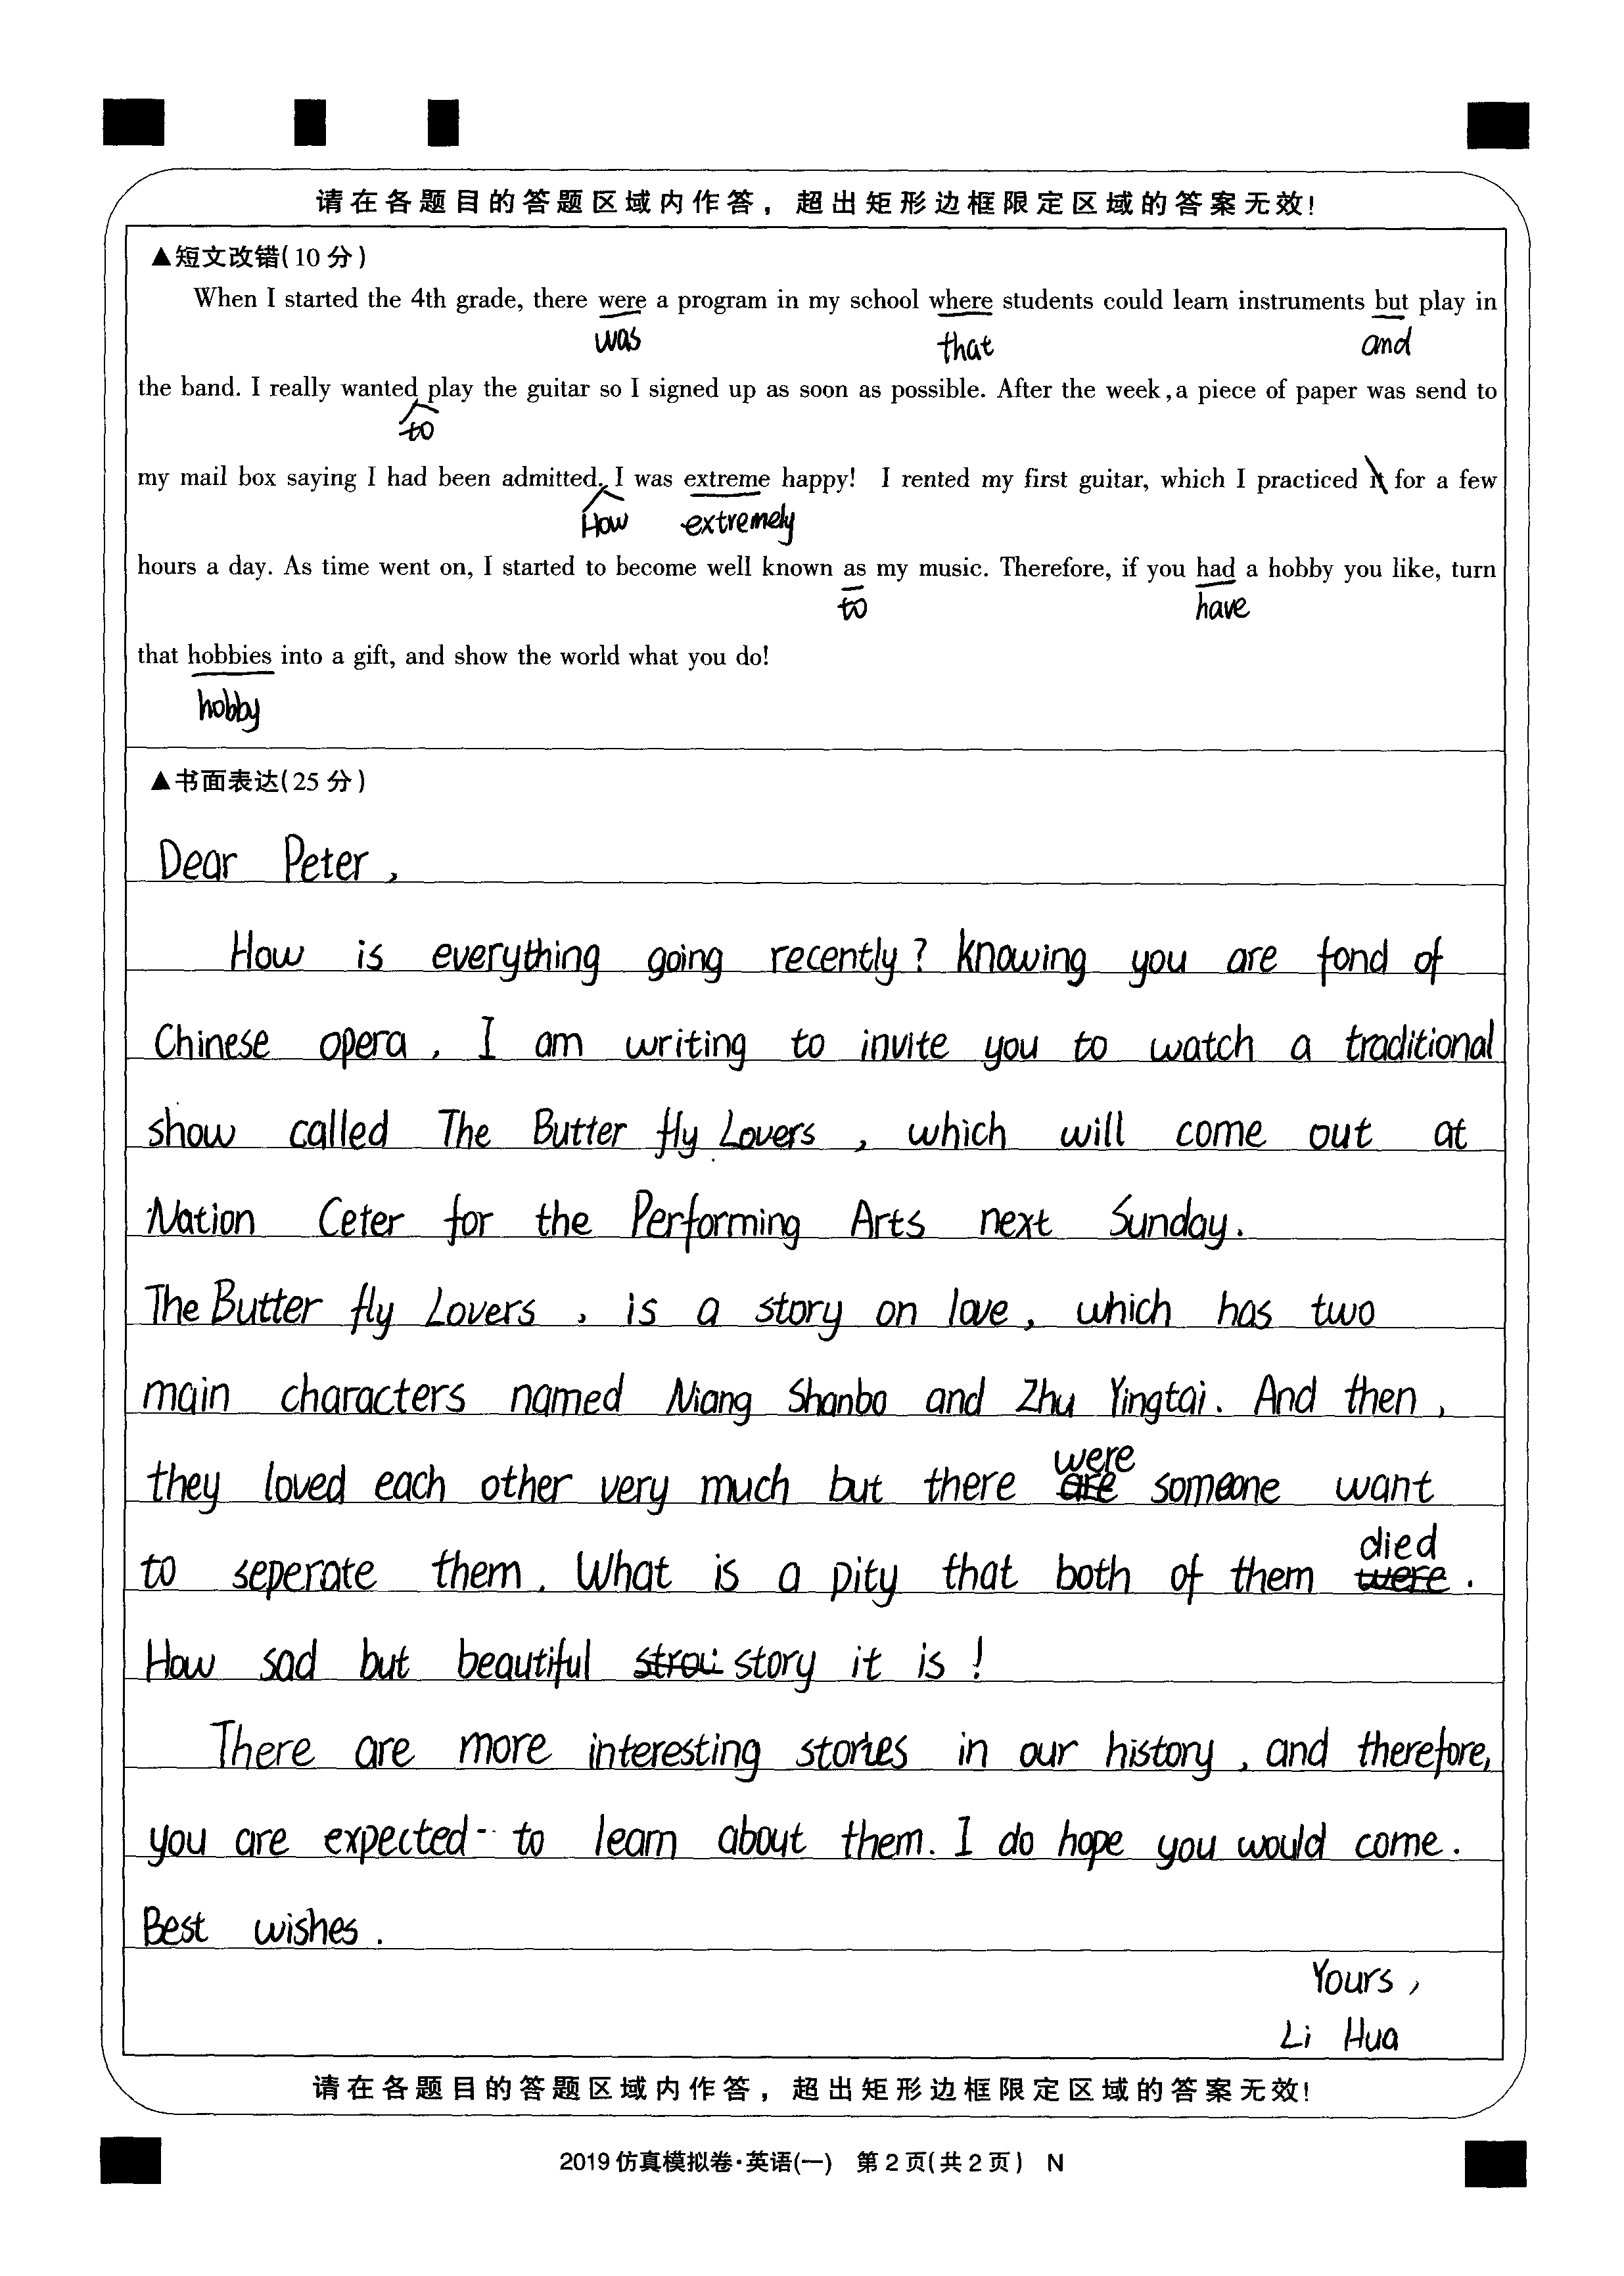 请在各题目的答题区域内作答，超出矩形边框限定区域的答案无效!
▲短文改错(10分)
When I started the 4th grade, there were a program in my school where students could learn instruments but play in
was that and
the band. I really wanted play the guitar so I signed up as soon as possible. After the week, a piece of paper was send to
to
my mail box saying I had been admitted. I was extreme happy! I rented my first guitar, which I practiced it for a few
How extremely
hours a day. As time went on, I started to become well known as my music. Therefore, if you had a hobby you like, turn
to have
that hobbies into a gift, and show the world what you do!
hobby
▲书面表达(25分)
Dear Peter,
How is everything going recently? Knowing you are fond of
Chinese opera, I am writing to invite you to watch a traditional
show called The Butter fly Lovers, which will come out at
Nation Ceter for the Performing Arts next Sunday.
The Butter fly Lovers, is a story on love, which has two
main characters named Niang Shanbo and Zhu Yingtai. And then,
were
they loved each other very much but there are someone want
died
to seperate them. What is a pity that both of them were.
How sad but beautiful strou story it is!
There are more interesting stories in our history, and therefore,
you are expected to learn about them. I do hope you would come.
Best wishes.
Yours,
Li Hua
请在各题目的答题区域内作答，超出矩形边框限定区域的答案无效!
2019仿真模拟卷·英语(一) 第2页(共2页) N